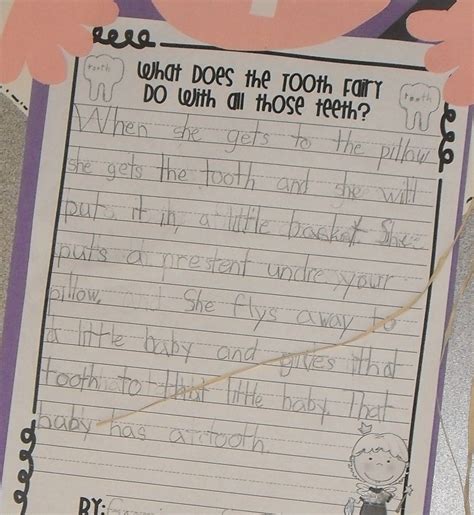 What Does the Tooth Fairy
Do With all those teeth?
tooth
tooth
When she gets to the pillow
she gets the tooth and she will
put it in, a little basket. She
puts a prestent undre yourr
pillow. She flys away to
a little baby and gives that
tooth to that little baby. That
baby has a tooth.
BY: